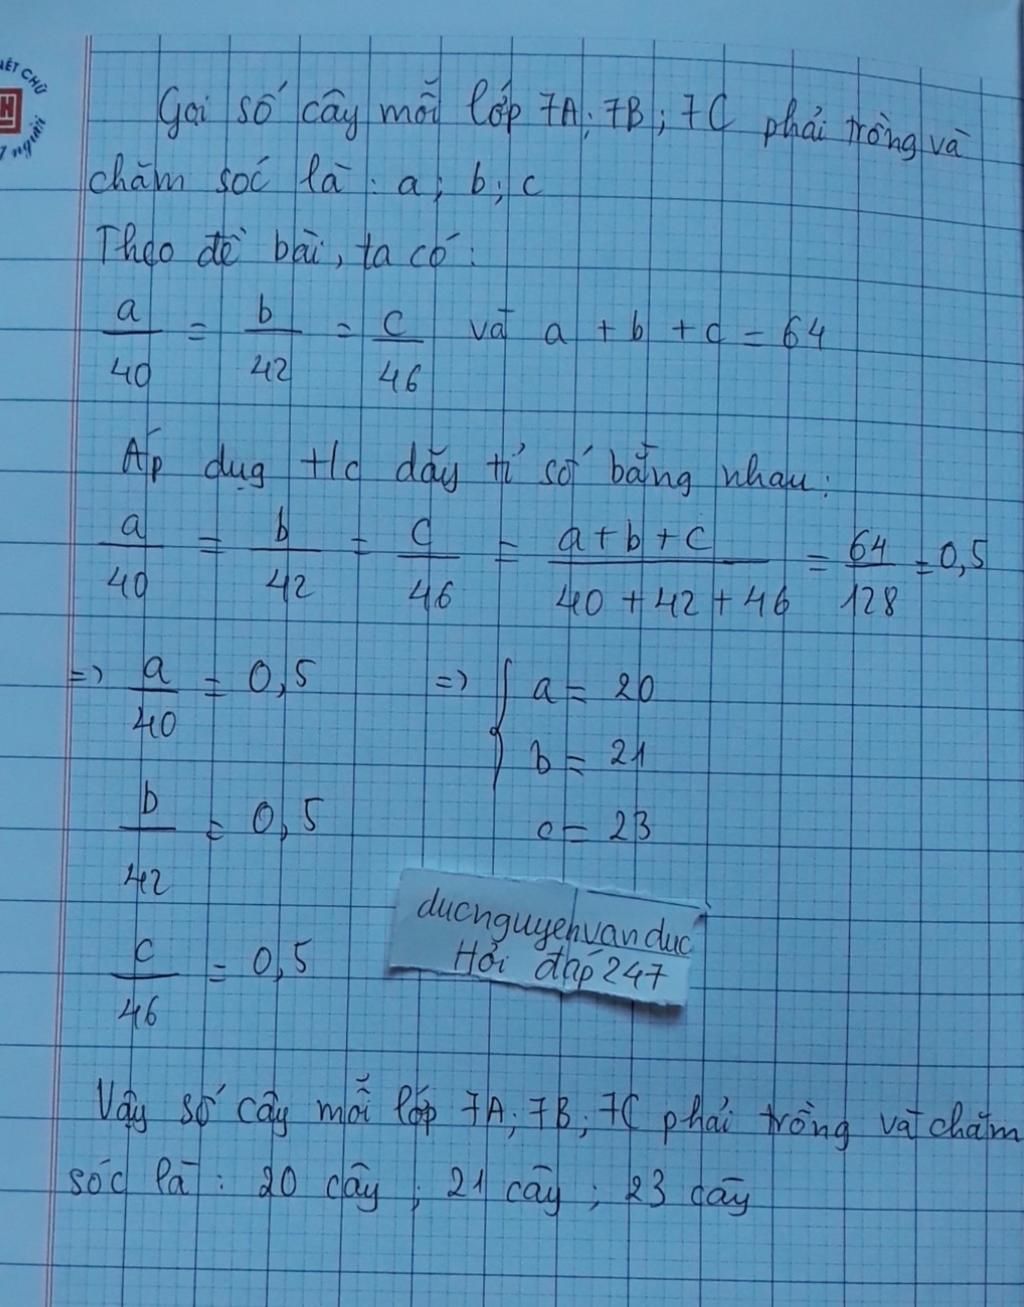 IẾT CHỮ
H
người
Gọi số cây mỗi lớp 7A; 7B; 7C phải trồng và
chăm sóc là: a; b; c
Theo đề bài, ta có:
a/40 = b/42 = c/46 và a + b + c = 64
Áp dụg t/c dãy tỉ số bằng nhau:
a/40 = b/42 = c/46 = a+b+c/40+42+46 = 64/128 = 0,5
=> a/40 = 0,5 => { a = 20
b = 21
b/42 = 0,5 c = 23
ducnguyenvanduc
Hỏi đáp 247
c/46 = 0,5
Vậy số cây mỗi lớp 7A; 7B; 7C phải trồng và chăm
sóc là: 20 cây; 21 cây; 23 cây